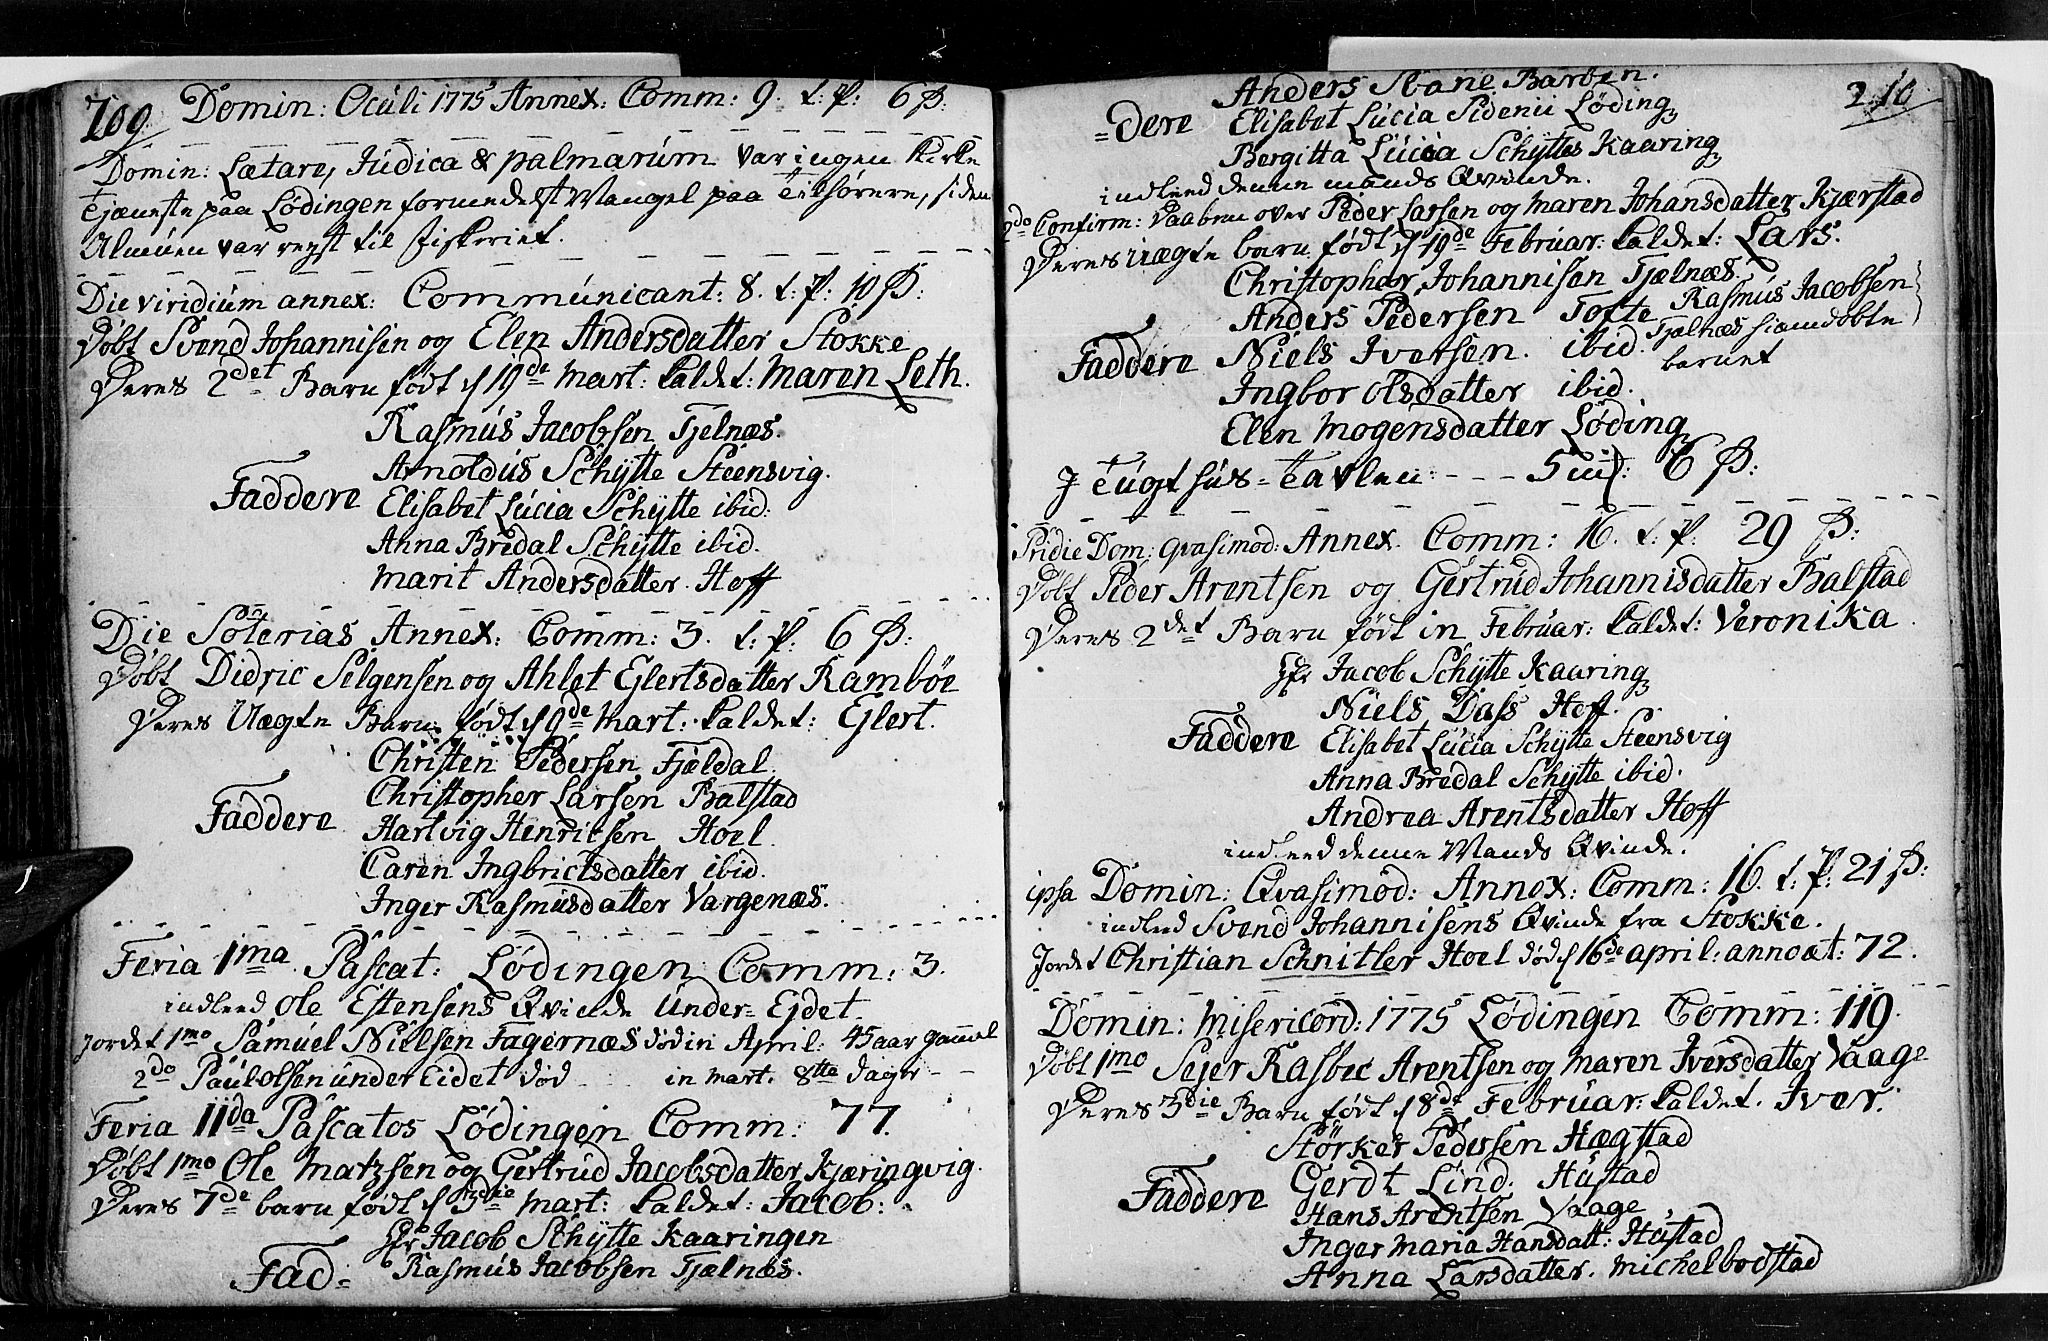 209
Domin: Oculi 1775 Annex: Comm: 9. t: P: 6 ß:
Domin: Lætare, Judica & palmarum var ingen Kirke
Tjæneste paa Lødingen formedelst Mangel paa Tilhørere, siden
Almuen var reyst til fiskeriet.
Die viridium annex: Communicant: 8. t: P: 10 ß:
Døbt Svend Johannisen og Elen Andersdatter Stokke
Deres 2det Barn født d 19de Mart: kaldet: Maren Leth.
Rasmus Jacobsen Tjelnæs.
Arnoldus Schytte Steensvig.
Faddere Elisabet Lucia Schytte ibid:
Anna Bredal Schytte ibid.
Marit Andersdatter Hoff
Die Soterias Annex: Comm: 3. t: P: 6 ß:
Døbt Didric Selgensen og Ahlet Ejlertsdatter Rambøe
Deres Uægte Barn født d 9de Mart: kaldet: Ejlert.
Christen Pedersen Fjeldal
Christopher Larsen Balstad
Faddere Hartvig Henricsen Hoel
Caren Ingbrictsdatter ibid.
Inger Rasmusdatter Vargenæs.
Feria 1ma Pascat: Lødingen Comm: 3.
indleed Ole Estensens Qvinde Under-Ejdet
Jordet 1mo Samuel Nielsen Fagernæs død in April: 45 aar gammel
2do Paul Olsen under Eidet død in Mart. 8tte dager
Feria IIda Pascatos Lødingen Comm: 77.
Døbt 1mo Ole Matzsen og Gertrud Jacobsdatter Kjæringvig.
Deres 7de barn født d 3die Mart: kaldet: Jacob:
Hr Jacob Schytte Kaaringen
Fad= Rasmus Jacobsen Tjælnæs.
210
Anders Stane Barben.
=dere Elisabet Lucia Sidenii Løding
Bergitta Lucia Schyttes Kaaring
indleed denne mands Qvinde.
2do Confirm: Daaben over Peder Larsen og Maren Johansdatter Kjærstad
Deres uægte barn født d 19de Februar: kaldet: Lars.
Christopher Johannisen Tjælnæs
Anders Pedersen Tofte
Rasmus Jacobsen
Tjælnæs hiemdøbte
barnet
Faddere Niels Iversen. ibid.
Ingbor Olsdatter ibid.
Elen Mogensdatter Løding
J Tugthus-Tavlen --- 5 mk: 6 ß:
Pridie Dom: Qvasimod: Annex. Comm: 16. t. P. 29 ß:
Døbt Peder Arentsen og Gertrud Johannisdatter Balstad
Deres 2det Barn født in Februar: kaldet: Veronika.
Hr Jacob Schytte Kaaring
Niels Dass Hoff.
Faddere Elisabet Lucia Schytte Steensvig
Anna Bredal Schytte ibid.
Andrea Arentsdatter Hoff
indleed denne Mands Qvinde.
ipsa Domin: Qvasimod: Annex: Comm: 16. t: P: 21 ß:
indleed Svend Johannisens Qvinde fra Stokke.
Jordet Christian Schnitler Hoel død d 16de april: anno æt: 72.
Domin: Misericord: 1775 Lødingen Comm: 119.
Døbt 1mo Sejer Rasbec Arentsen og Maren Iversdatter Vaage
Deres 3die Barn født d 8de Februar: kaldet. Iver.
Størker Pedersen Hægstad
Faddere Gerdt Lind. Hustad
Hans Arentsen Vaage
Inger Maria Hansdatt: Hustad
Anna Larsdatter. Michelbodstad